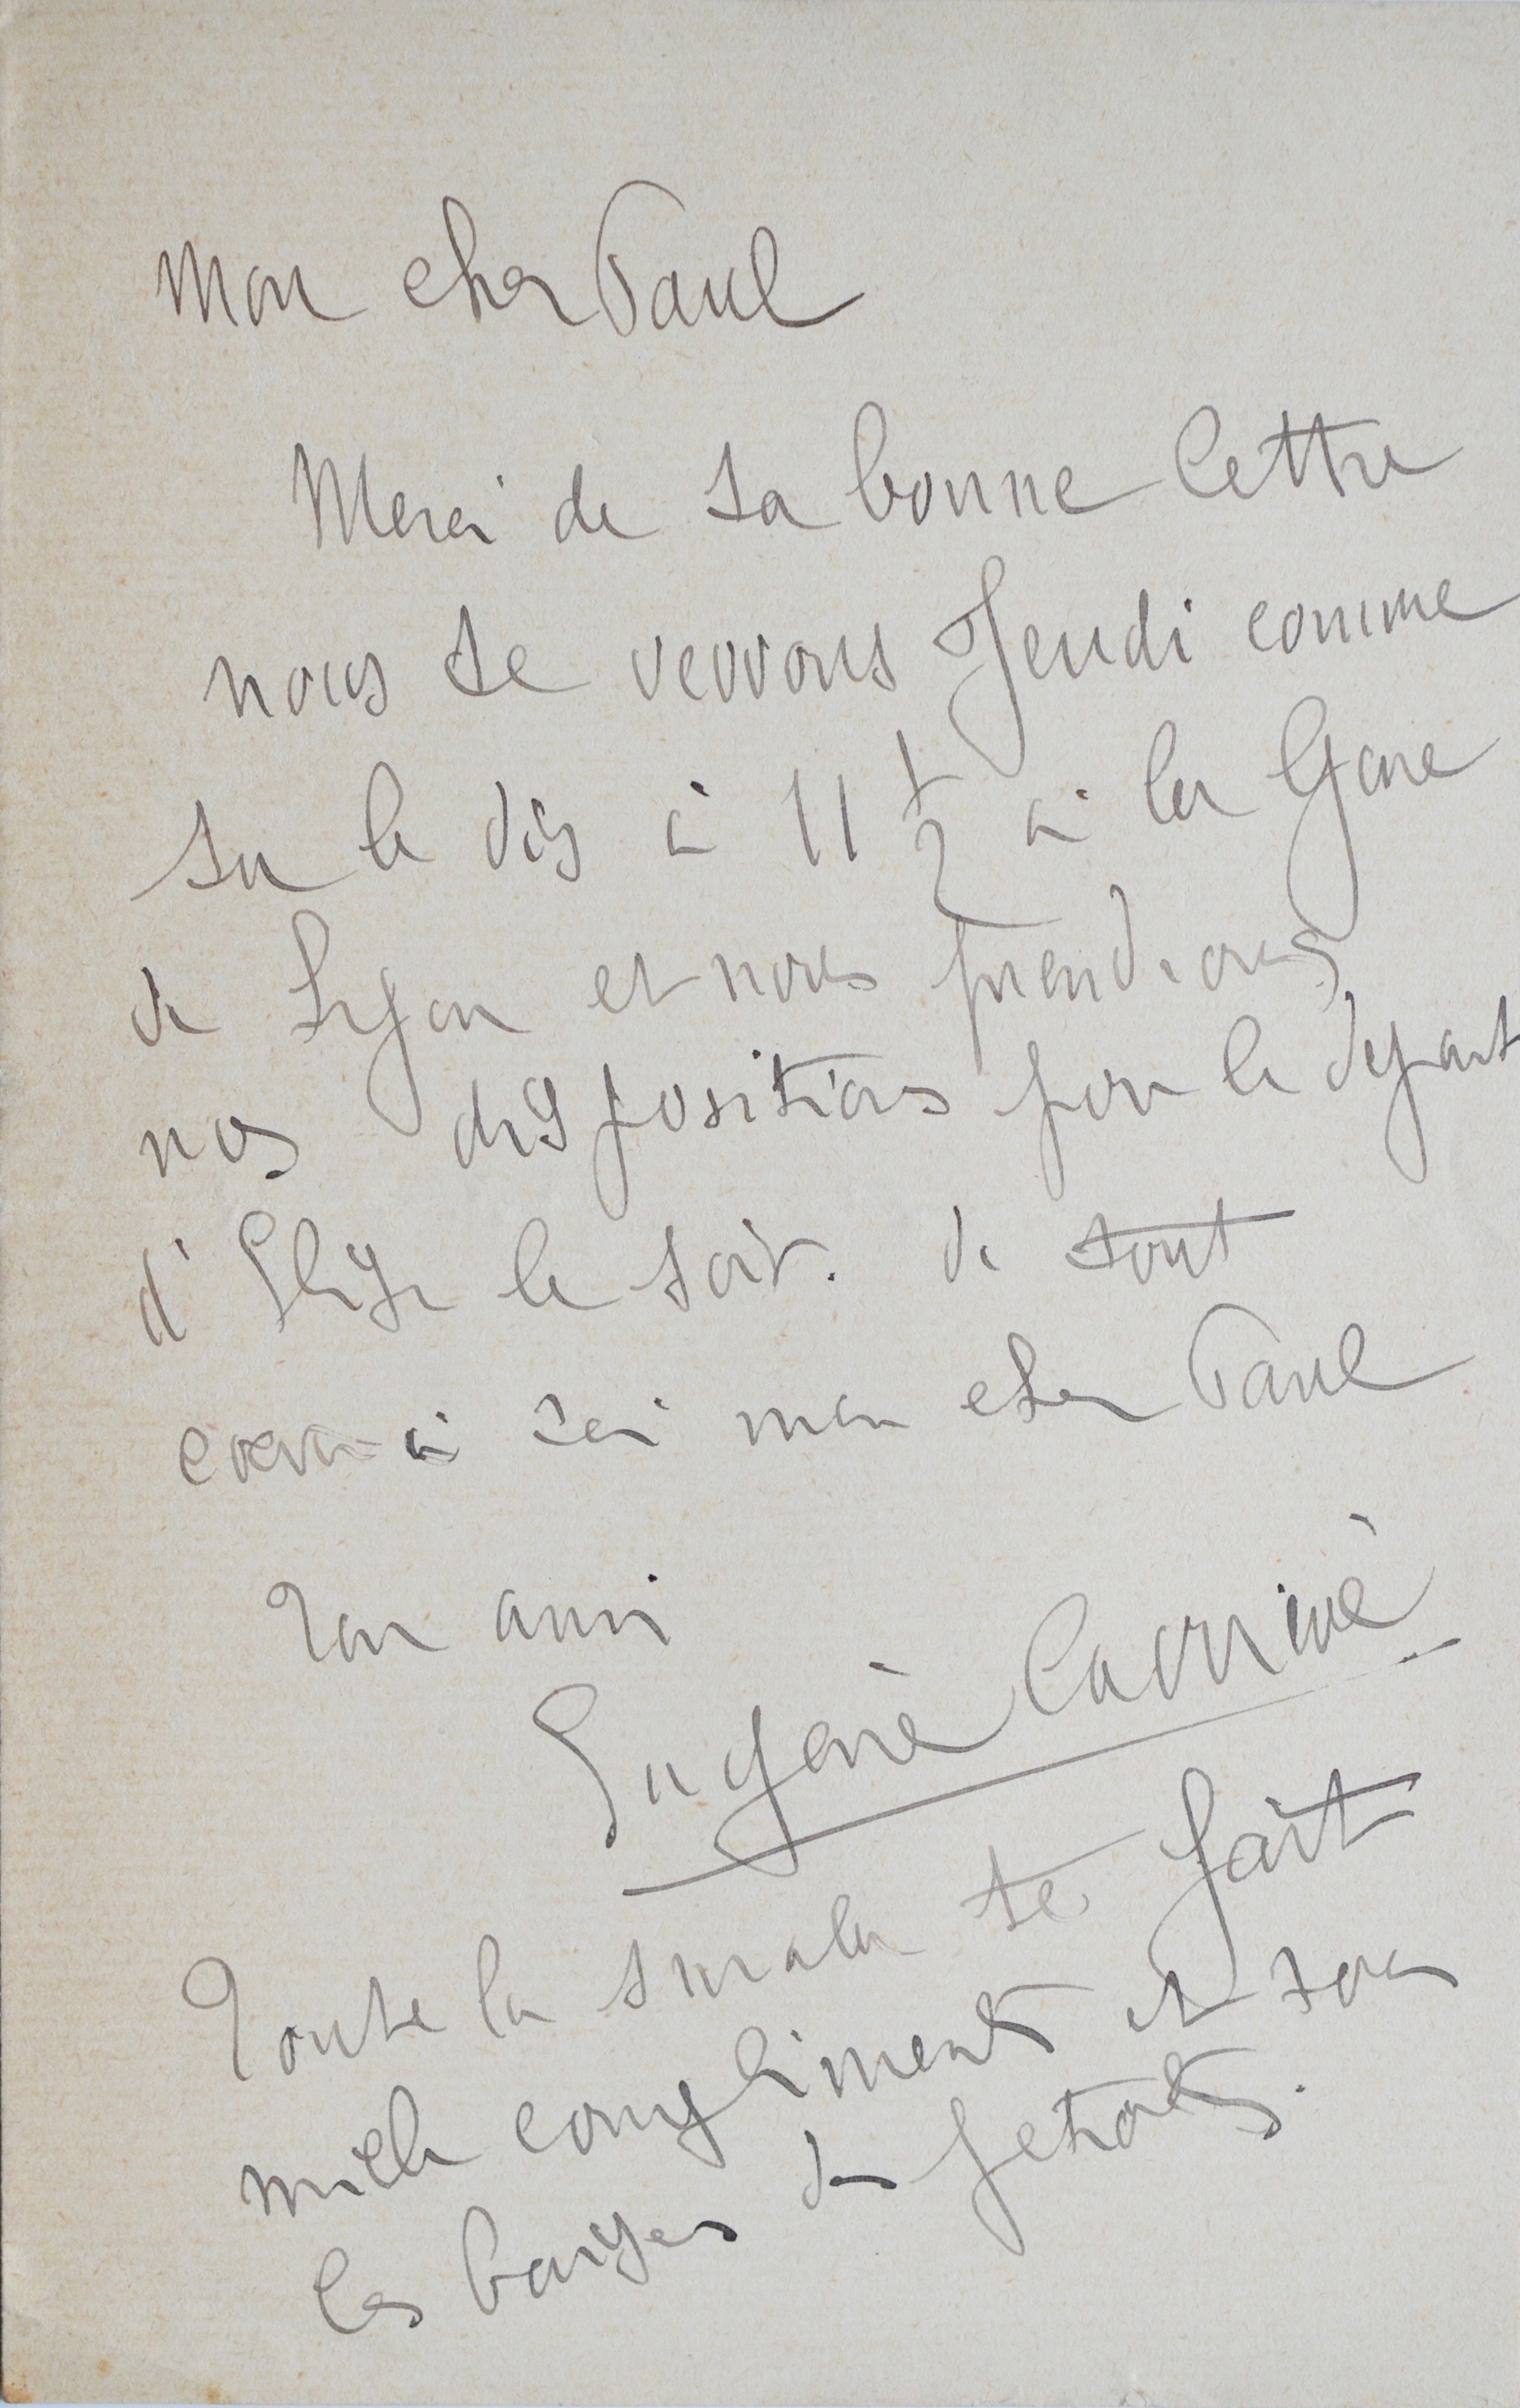 Mon cher Paul
Merci de ta bonne lettre
nous te verrons Jeudi comme
tu le dis à 11 1/2 à la Gare
de Lyon et nous prendrons
nos dispositions pour le départ
d'Elise le soir. de tout
coeur à toi mon cher Paul
Ton ami
Eugène Carrière
Toute la smala te fait
mille compliments et tous
les